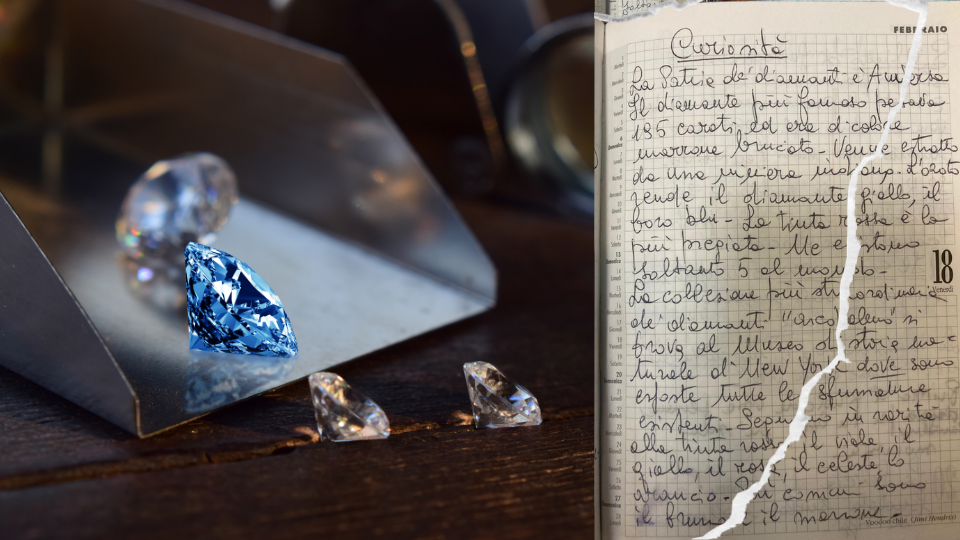 FEBBRAIO
Curiosità
La Patria de' diamanti è Anversa
Il diamante più famoso pesava
195 carati ed era di colore
marrone bruciato. Venne estratto
da una miniera in
rende il diamante giallo, il
boro blu. La tinta rossa è la
più pregiata. Ne esistono
soltanto 5 al mondo.
La collezione più straordinaria
de' diamanti "arcobaleno" si
trova al Museo di storia na=
turale di New York dove sono
esposte tutte le sfumature
esistenti. Seguono in rarità
alla tinta rossa il viola, il
giallo, il rosa, il celeste, lo
arancio. Più comuni sono
il bruno e il marrone.
18
Venerdì
Voodoo chile (Jimi Hendrix)